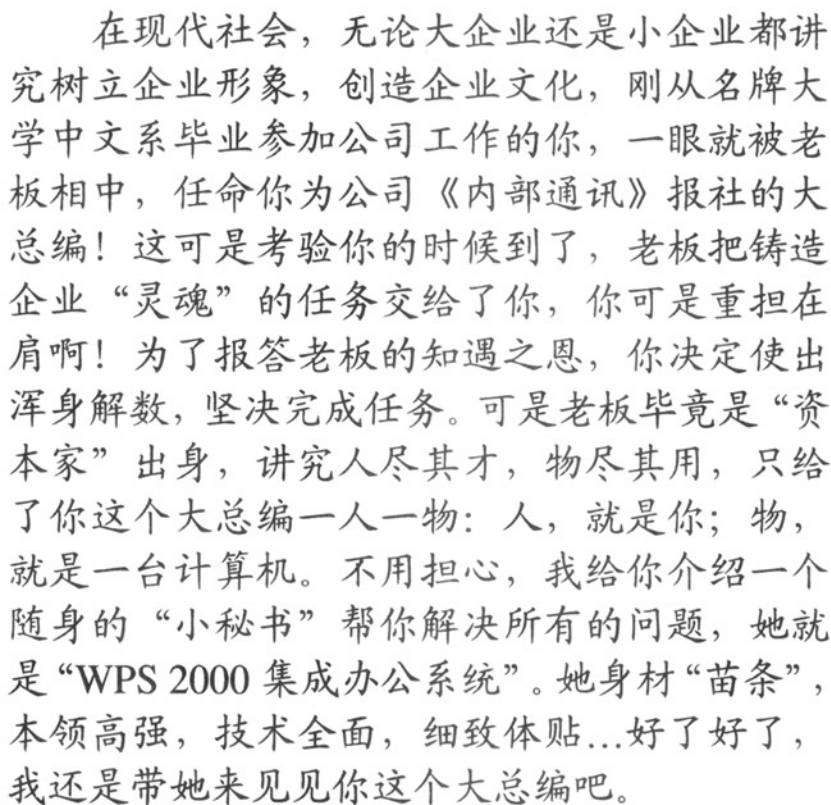 在现代社会，无论大企业还是小企业都讲
究树立企业形象，创造企业文化，刚从名牌大
学中文系毕业参加公司工作的你，一眼就被老
板相中，任命你为公司《内部通讯》报社的大
总编！这可是考验你的时候到了，老板把铸造
企业“灵魂”的任务交给了你，你可是重担在
肩啊！为了报答老板的知遇之恩，你决定使出
浑身解数，坚决完成任务。可是老板毕竟是“资
本家”出身，讲究人尽其才，物尽其用，只给
了你这个大总编一人一物：人，就是你；物，
就是一台计算机。不用担心，我给你介绍一个
随身的“小秘书”帮你解决所有的问题，她就
是“WPS 2000 集成办公系统”。她身材“苗条”，
本领高强，技术全面，细致体贴...好了好了，
我还是带她来见见你这个大总编吧。